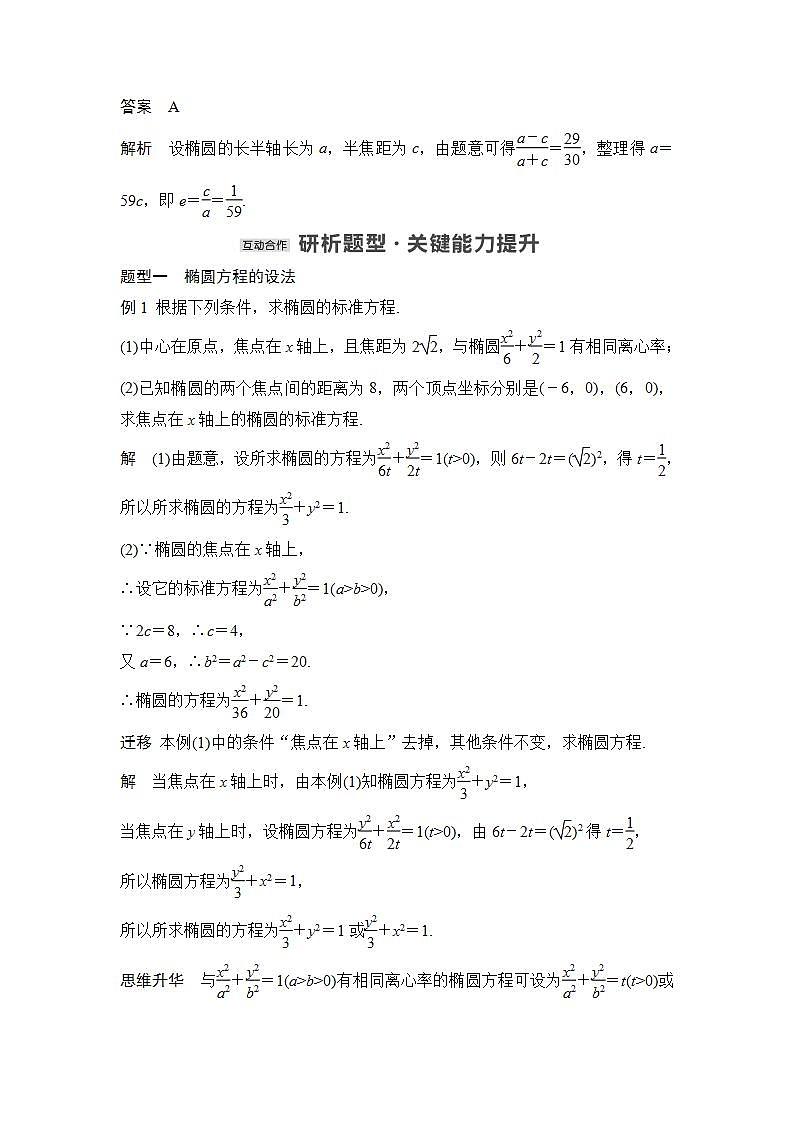 答案　A
解析　设椭圆的长半轴长为 a，半焦距为 c，由题意可得\frac{a－c}{a＋c}＝\frac{29}{30}，整理得 a＝
59c，即 e＝\frac{c}{a}＝\frac{1}{59}.
互动合作 研析题型·关键能力提升
题型一　椭圆方程的设法
例 1 根据下列条件，求椭圆的标准方程.
(1)中心在原点，焦点在 x 轴上，且焦距为 2\sqrt{2}，与椭圆\frac{x2}{6}＋\frac{y2}{2}＝1 有相同离心率；
(2)已知椭圆的两个焦点间的距离为 8，两个顶点坐标分别是(－6，0)，(6，0)，
求焦点在 x 轴上的椭圆的标准方程.
解　(1)由题意，设所求椭圆的方程为\frac{x2}{6t}＋\frac{y2}{2t}＝1(t>0)，则 6t－2t＝(\sqrt{2})2，得 t＝\frac{1}{2}，
所以所求椭圆的方程为\frac{x2}{3}＋y2＝1.
(2)∵椭圆的焦点在 x 轴上，
∴设它的标准方程为\frac{x2}{a2}＋\frac{y2}{b2}＝1(a>b>0)，
∵2c＝8，∴c＝4，
又 a＝6，∴b2＝a2－c2＝20.
∴椭圆的方程为\frac{x2}{36}＋\frac{y2}{20}＝1.
迁移 本例(1)中的条件“焦点在 x 轴上”去掉，其他条件不变，求椭圆方程.
解　当焦点在 x 轴上时，由本例(1)知椭圆方程为\frac{x2}{3}＋y2＝1，
当焦点在 y 轴上时，设椭圆方程为\frac{y2}{6t}＋\frac{x2}{2t}＝1(t>0)，由 6t－2t＝(\sqrt{2})2 得 t＝\frac{1}{2}，
所以椭圆方程为\frac{y2}{3}＋x2＝1，
所以所求椭圆的方程为\frac{x2}{3}＋y2＝1 或\frac{y2}{3}＋x2＝1.
思维升华　与\frac{x2}{a2}＋\frac{y2}{b2}＝1(a>b>0)有相同离心率的椭圆方程可设为\frac{x2}{a2}＋\frac{y2}{b2}＝t(t>0)或